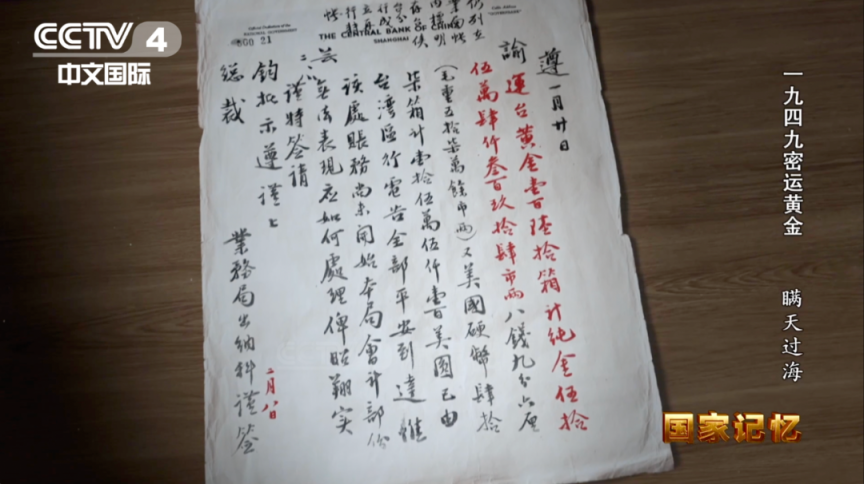 CCTV 4
中文国际
THE CENTRAL BANK OF CHINA
SHANGHAI
遵一月廿日
諭運台黃金壹百陸拾箱計純金伍拾
伍萬肆仟叁百玖拾肆市兩八錢九分六厘
(毛重五拾柒萬餘市兩)又美國硬幣肆拾
柒箱計壹拾伍萬伍仟壹百美圓已由
台灣區行電告全部平安到達惟
該處賬務尚未開始本局會計部份
無法表現應如何處理俾昭翔實
謹特簽請
鈞批示遵 謹上
總裁
業務局出納科謹簽
二月八日
一九四九密运黄金 瞒天过海
国家记忆